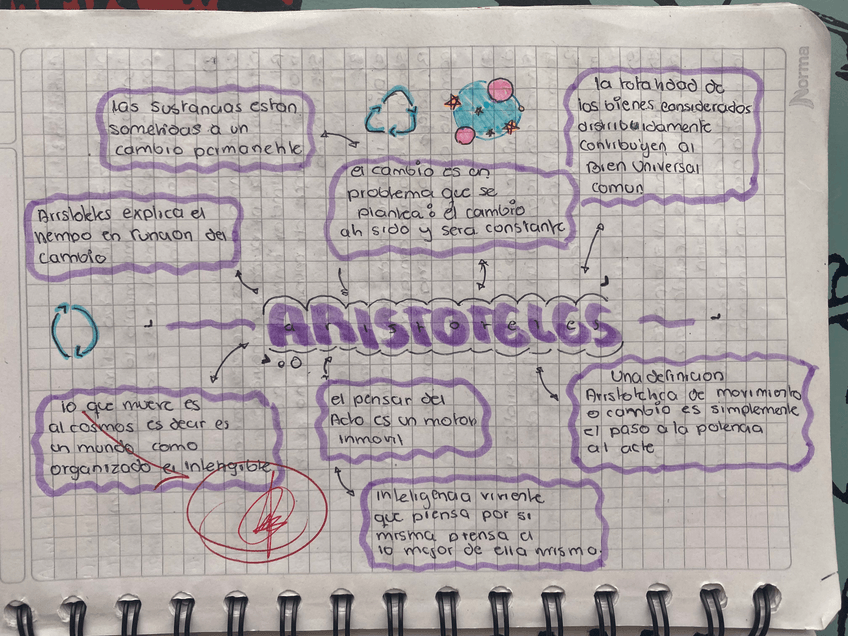 Norma
las sustancias estan
somenidas a un
cambio permanente
el cambio es un
problema que se
plantea: el cambio
ah sido y sera constante
la totalidad de
los bienes considerados
distribuidamente
contribuyen al
Bien Universal
comun
Aristoteles explica el
tiempo en funcion del
cambio
ARISTOTELES
lo que mueve es
al cosmos es decir es
un mundo como
organizado e intengible
el pensar del
Acto es un motor
inmovil
Una definicion
Aristotelica de movimiento
o cambio es simplemente
el paso a la potencia
al acte
inteligencia viviente
que piensa por si
misma piensa a
lo mejor de ella misma.